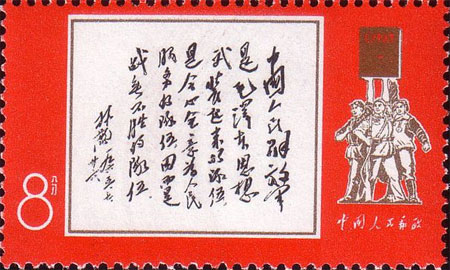 中国人民解放军
是毛泽东思想
武装起来的队伍,
是全心全意为人民
服务的队伍,因而是
战无不胜的队伍
林彪
廿六
8 八分
中国人民邮政